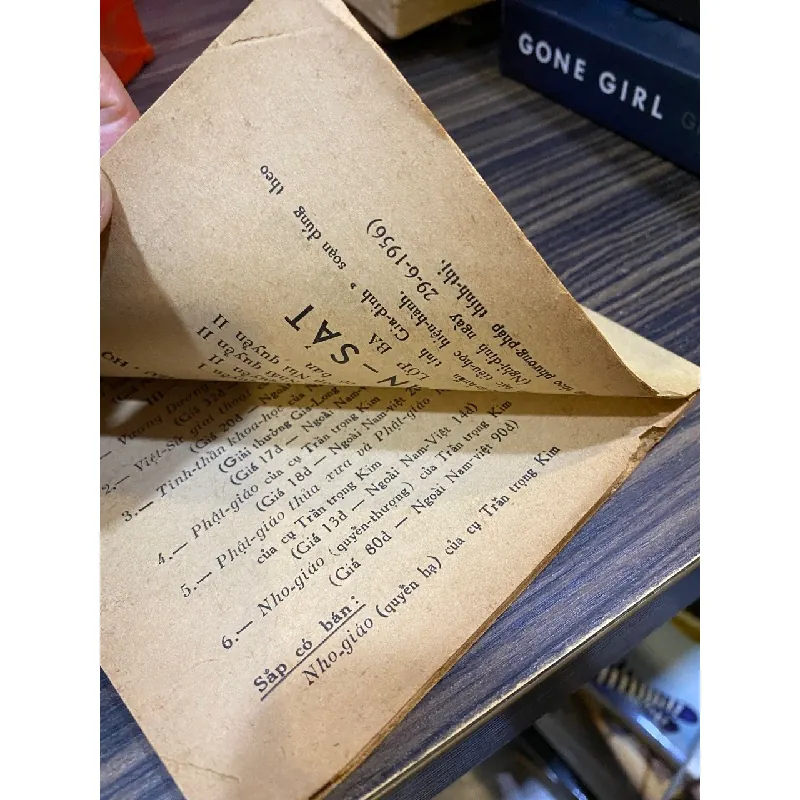 GONE GIRL
N – SÁT
LỚP BA
tỉnh Gia-định » soạn đúng theo
bậc tiểu-học hiện-hành.
(Nghị-định ngày 29-6-1956)
theo phương-pháp thính-thị,
quyển II
quyển II
Vương Dương
2.— Việt-Sử giai thoại
(Giá 20đ — Ngoài
3.— Tinh-thần khoa-học của
(Giải thưởng Gia-Long
(Giá 17đ — Ngoài Nam-
4.— Phật-giáo của cụ Trần trọng Kim
(Giá 18đ — Ngoài Nam-việt
5.— Phật-giáo thủa xưa và Phật-giáo
của cụ Trần trọng Kim
(Giá 13đ — Ngoài Nam-Việt 14đ)
6.— Nho-giáo (quyển-thượng) của Trần trọng Kim
(Giá 80đ — Ngoài Nam-việt 90đ)
Sắp có bán :
Nho-giáo (quyển hạ) của cụ Trần trọng Kim